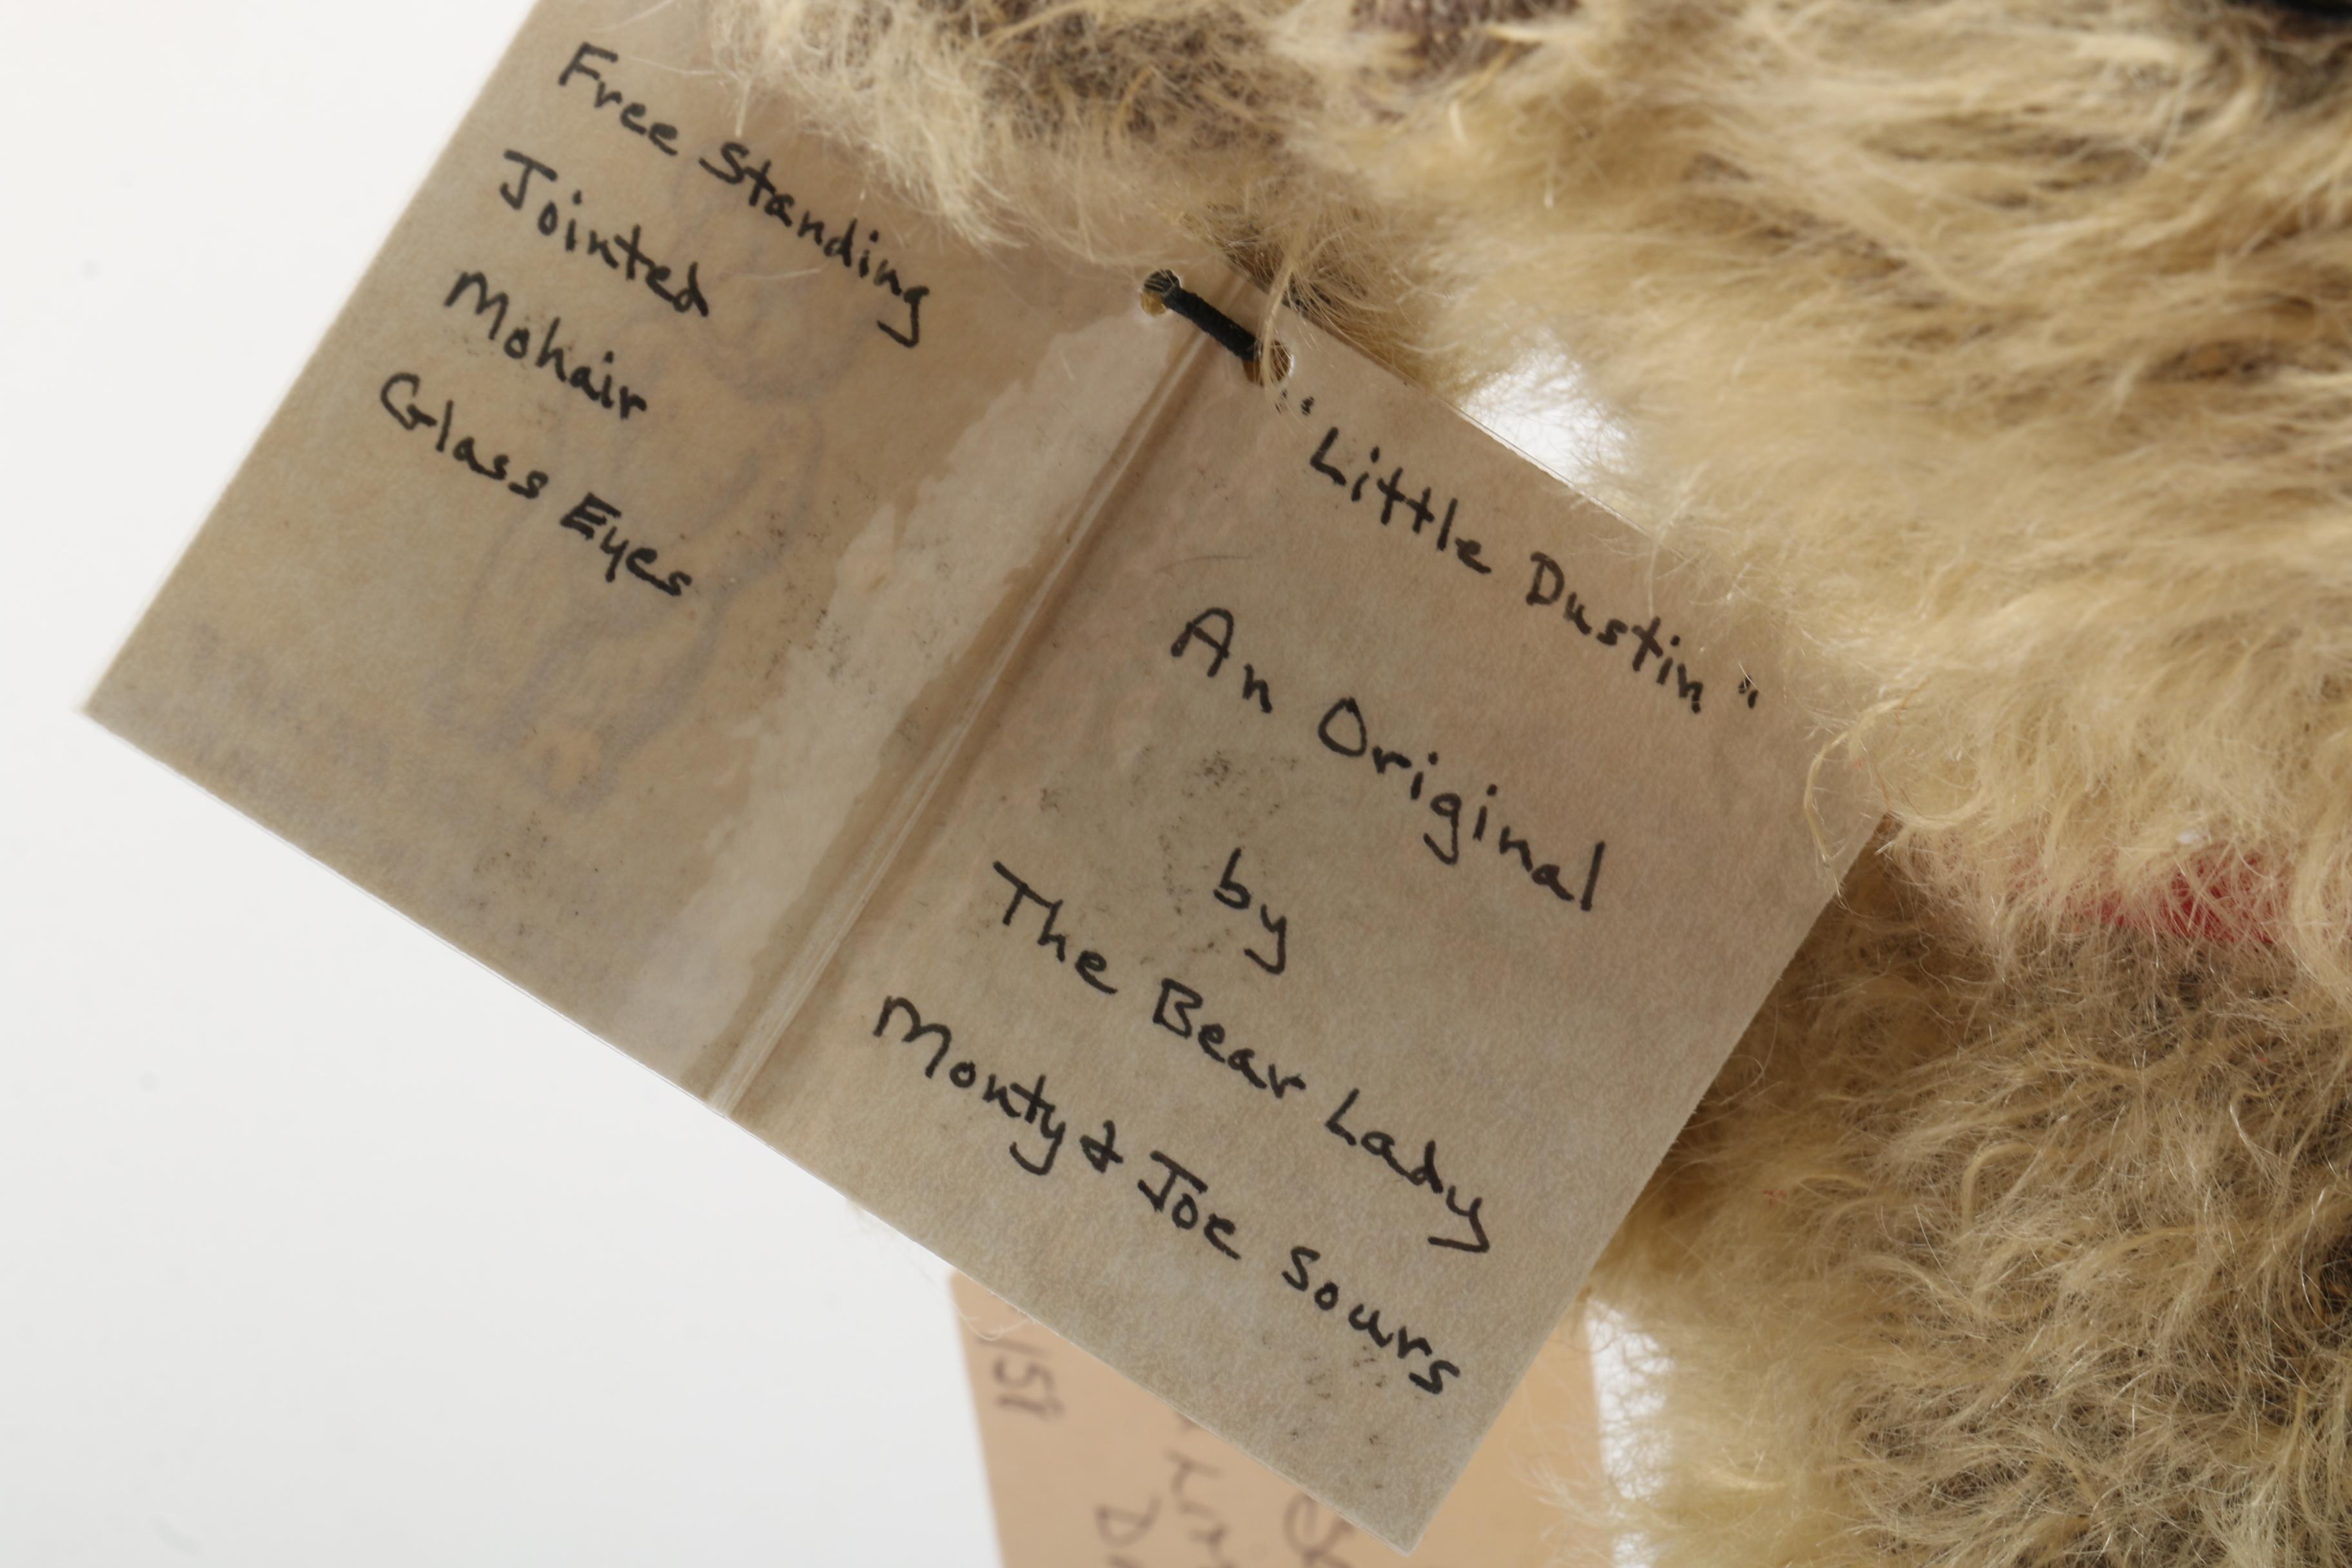 Free Standing
Jointed
Mohair
Glass Eyes
"Little Dustin"
An Original
by
The Bear Lady
Monty & Joe Sours